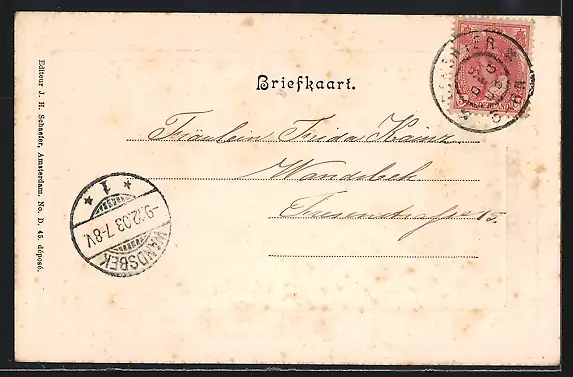 Briefkaart.
Fräulein Frida Kainz
Wandsbek
15.
Editeur J. H. Schaefer, Amsterdam. No. D. 45. déposé.
* 1 *
-9.12.03 7-8V.
WANDSBEK